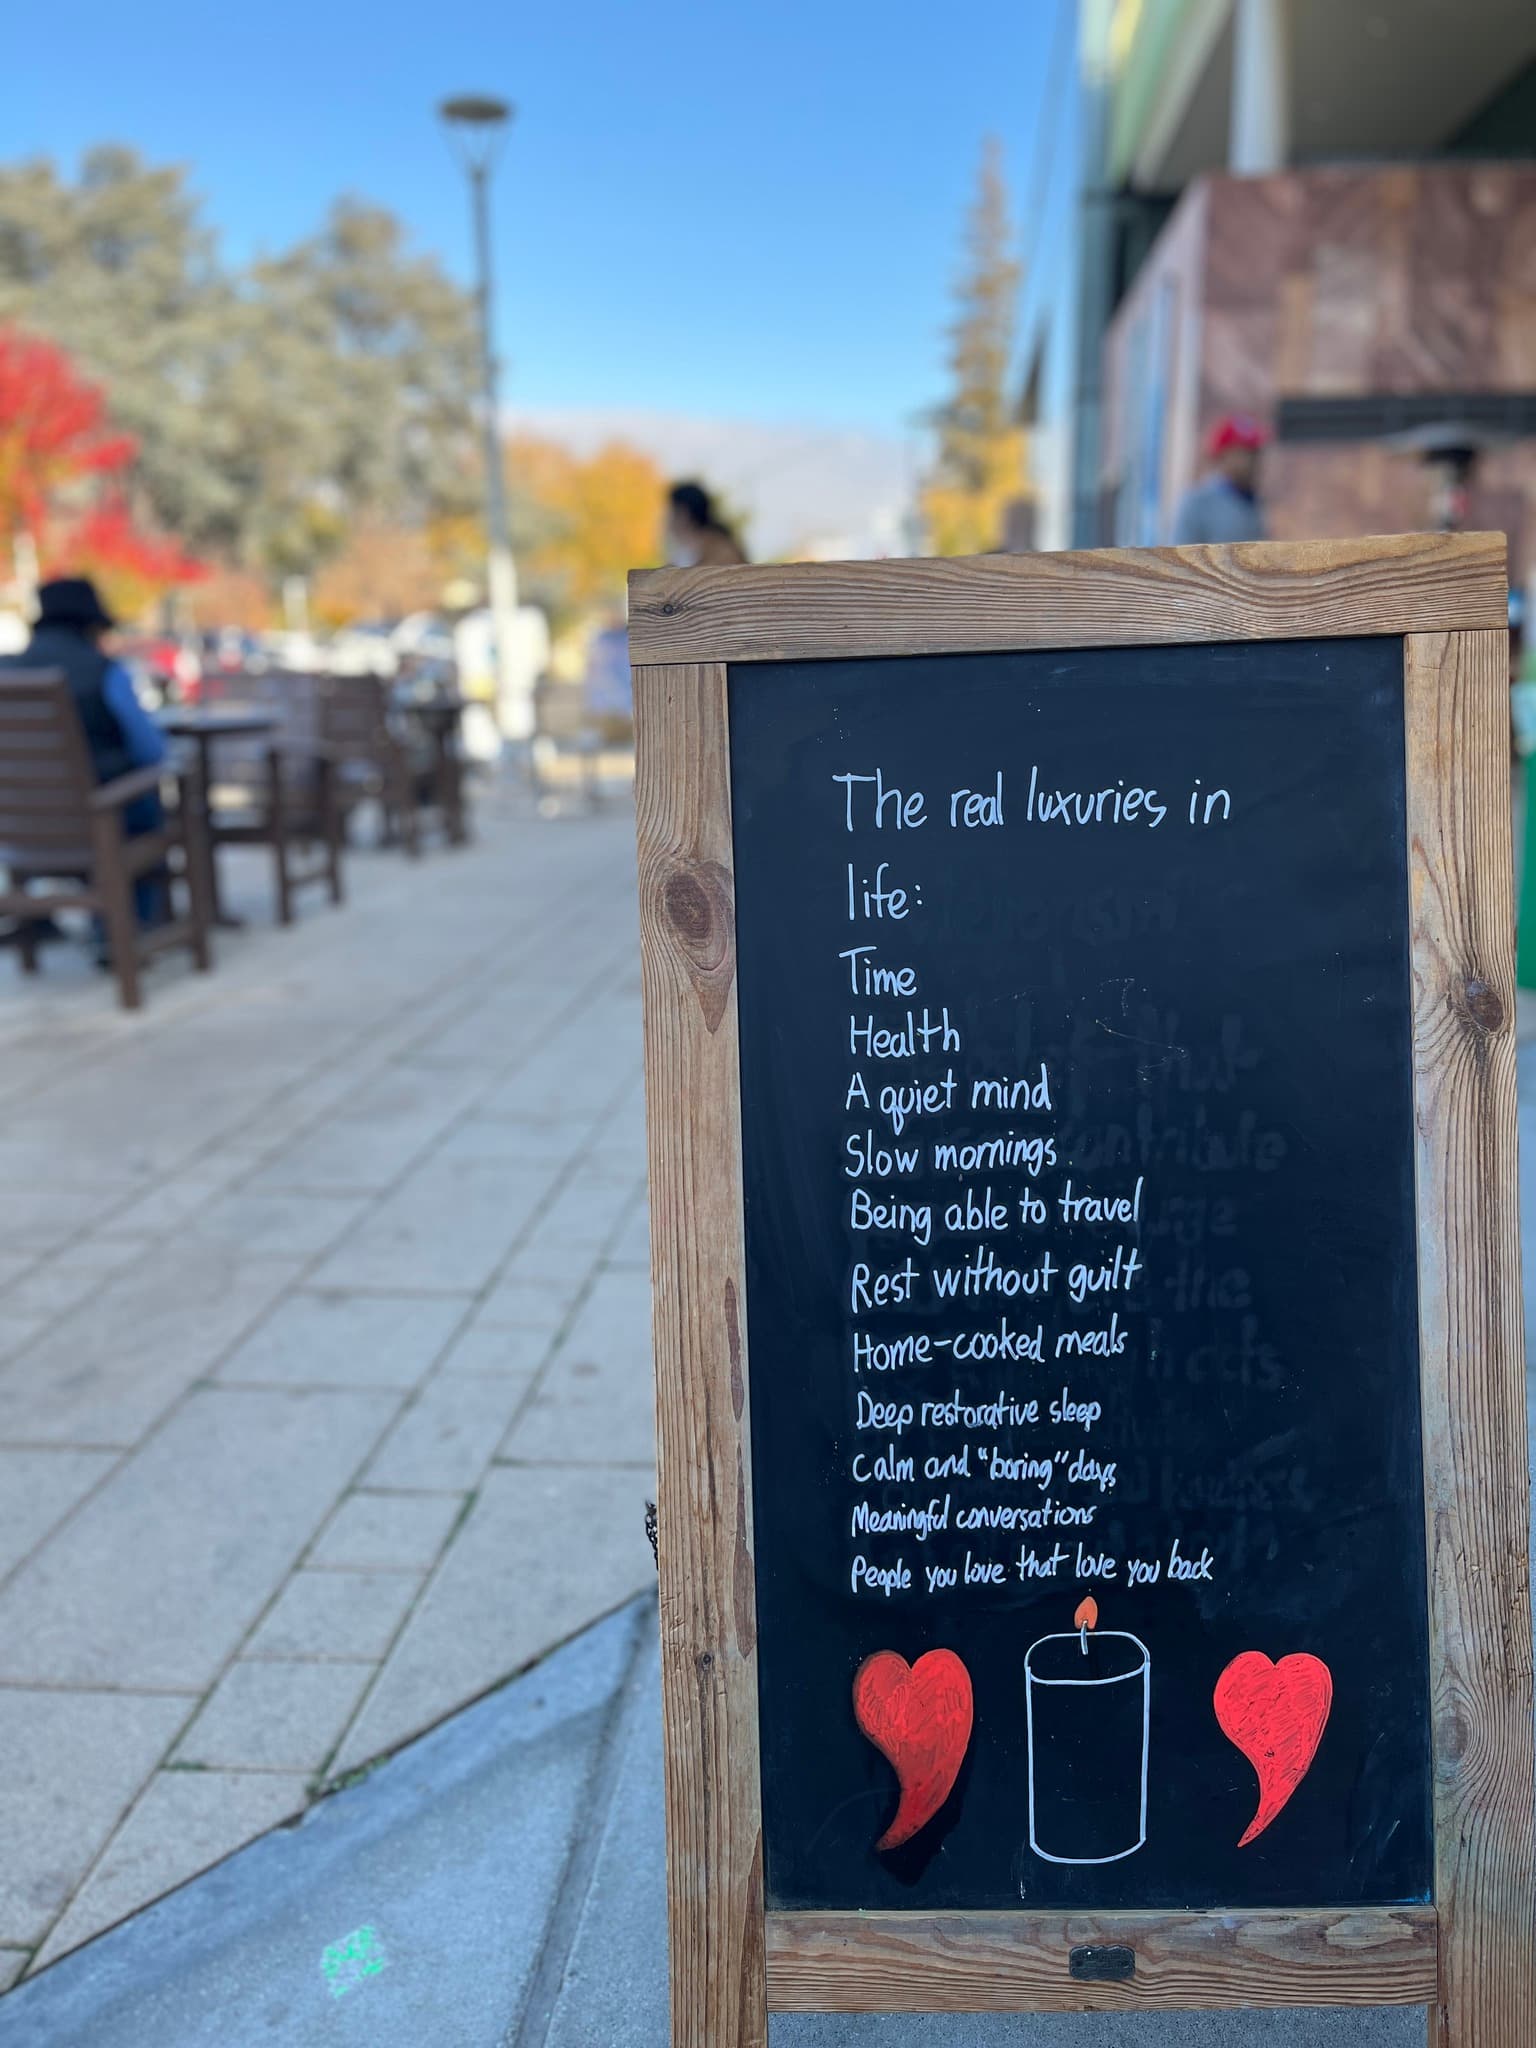 The real luxuries in
life:
Time
Health
A quiet mind
Slow mornings
Being able to travel
Rest without guilt
Home-cooked meals
Deep restorative sleep
Calm and "boring" days
Meaningful conversations
People you love that love you back